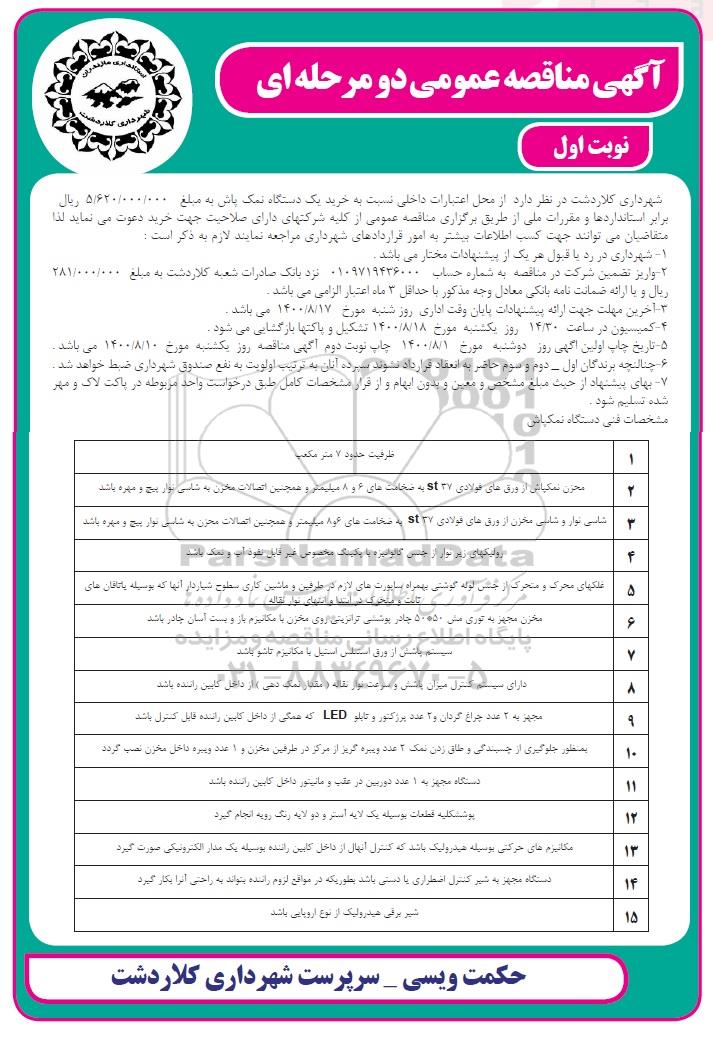 استانداری مازندران
شهرداری کلاردشت
آگهی مناقصه عمومی دو مرحله ای
نوبت اول
شهرداری کلاردشت در نظر دارد از محل اعتبارات داخلی نسبت به خرید یک دستگاه نمک پاش به مبلغ ۵/۶۲۰/۰۰۰/۰۰۰ ریال
برابر استانداردها و مقررات ملی از طریق برگزاری مناقصه عمومی از کلیه شرکتهای دارای صلاحیت جهت خرید دعوت می نماید لذا
متقاضیان می توانند جهت کسب اطلاعات بیشتر به امور قراردادهای شهرداری مراجعه نمایند لازم به ذکر است :
۱- شهرداری در رد یا قبول هر یک از پیشنهادات مختار می باشد .
۲-واریز تضمین شرکت در مناقصه به شماره حساب ۰۱۰۹۷۱۹۴۳۶۰۰۰ نزد بانک صادرات شعبه کلاردشت به مبلغ ۲۸۱/۰۰۰/۰۰۰
ریال و یا ارائه ضمانت نامه بانکی معادل وجه مذکور با حداقل ۳ ماه اعتبار الزامی می باشد .
۳-آخرین مهلت جهت ارائه پیشنهادات پایان وقت اداری روز شنبه مورخ ۱۴۰۰/۸/۱۷ می باشد .
۴-کمیسیون در ساعت ۱۴/۳۰ روز یکشنبه مورخ ۱۴۰۰/۸/۱۸ تشکیل و پاکتها بازگشایی می شود .
۵-تاریخ چاپ اولین آگهی روز دوشنبه مورخ ۱۴۰۰/۸/۱ چاپ نوبت دوم آگهی مناقصه روز یکشنبه مورخ ۱۴۰۰/۸/۱۰ می باشد .
۶-چنالنچه برندگان اول _ دوم و سوم حاضر به انعقاد قرارداد نشوند سپرده آنان به ترتیب اولویت به نفع صندوق شهرداری ضبط خواهد شد .
۷- بهای پیشنهاد از حیث مبلغ مشخص و معین و بدون ابهام و از قرار مشخصات کامل طبق درخواست واحد مربوطه در پاکت لاک و مهر
شده تسلیم شود .
مشخصات فنی دستگاه نمکپاش
۱ ظرفیت حدود ۷ متر مکعب
۲ محزن نمکپاش از ورق های فولادی st ۳۷ به ضخامت های ۶ و ۸ میلیمتر و همچنین اتصالات مخزن به شاسی نوار پیچ و مهره باشد
۳ شاسی نوار و شاسی مخزن از ورق های فولادی st ۳۷ به ضخامت های ۶و۸ میلیمتر و همچنین اتصالات محزن به شاسی نوار پیچ و مهره باشد
۴ رولیکهای زیر نوار از جنس گالوانیزه با پکینگ مخصوص غیر قابل نفوذ آب و نمک باشد
۵ غلکهای محرک و متحرک از جنس لوله گوشتی بهمراه ساپورت های لازم در طرفین و ماشین کاری سطوح شیاردار آنها که بوسیله یاتاقان های
ثابت و متحرک در ابتدا و انتهای نوار نقاله
۶ مخزن مجهز به توری مش ۵۰*۵۰ چادر پوششی ترانزیتی روی مخزن با مکانیزم باز و بست آسان چادر باشد
۷ سیستم پاشش از ورق استنلس استیل با مکانیزم تاشو باشد
۸ دارای سیستم کنترل میزان پاشش و سرعت نوار نقاله ( مقدار نمک دهی ) از داخل کابین راننده باشد
۹ مجهز به ۲ عدد چراغ گردان و۲ عدد پرزکتور و تابلو LED که همگی از داخل کابین راننده قابل کنترل باشد
۱۰ بمنظور جلوگیری از چسبندگی و طاق زدن نمک ۲ عدد ویبره گریز از مرکز در طرفین مخزن و ۱ عدد ویبره داخل مخزن نصب گردد
۱۱ دستگاه مجهز به ۱ عدد دوربین در عقب و مانیتور داخل کابین راننده باشد
۱۲ پوششکلیه قطعات بوسیله یک لایه آستر و دو لایه رنگ رویه انجام گیرد
۱۳ مکانیزم های حرکتی بوسیله هیدرولیک باشد که کنترل آنهال از داخل کابین راننده بوسیله یک مدار الکترونیکی صورت گیرد
۱۴ دستگاه مجهز به شیر کنترل اضطراری یا دستی باشد بطوریکه در مواقع لزوم راننده بتواند به راحتی آنرا بکار گیرد
۱۵ شیر برقی هیدرولیک از نوع اروپایی باشد
ParsNamadData
پایگاه اطلاع رسانی مناقصه و مزایده
۰۲۱-۸۸۳۴۹۶۷۰-۵
حکمت ویسی _ سرپرست شهرداری کلاردشت